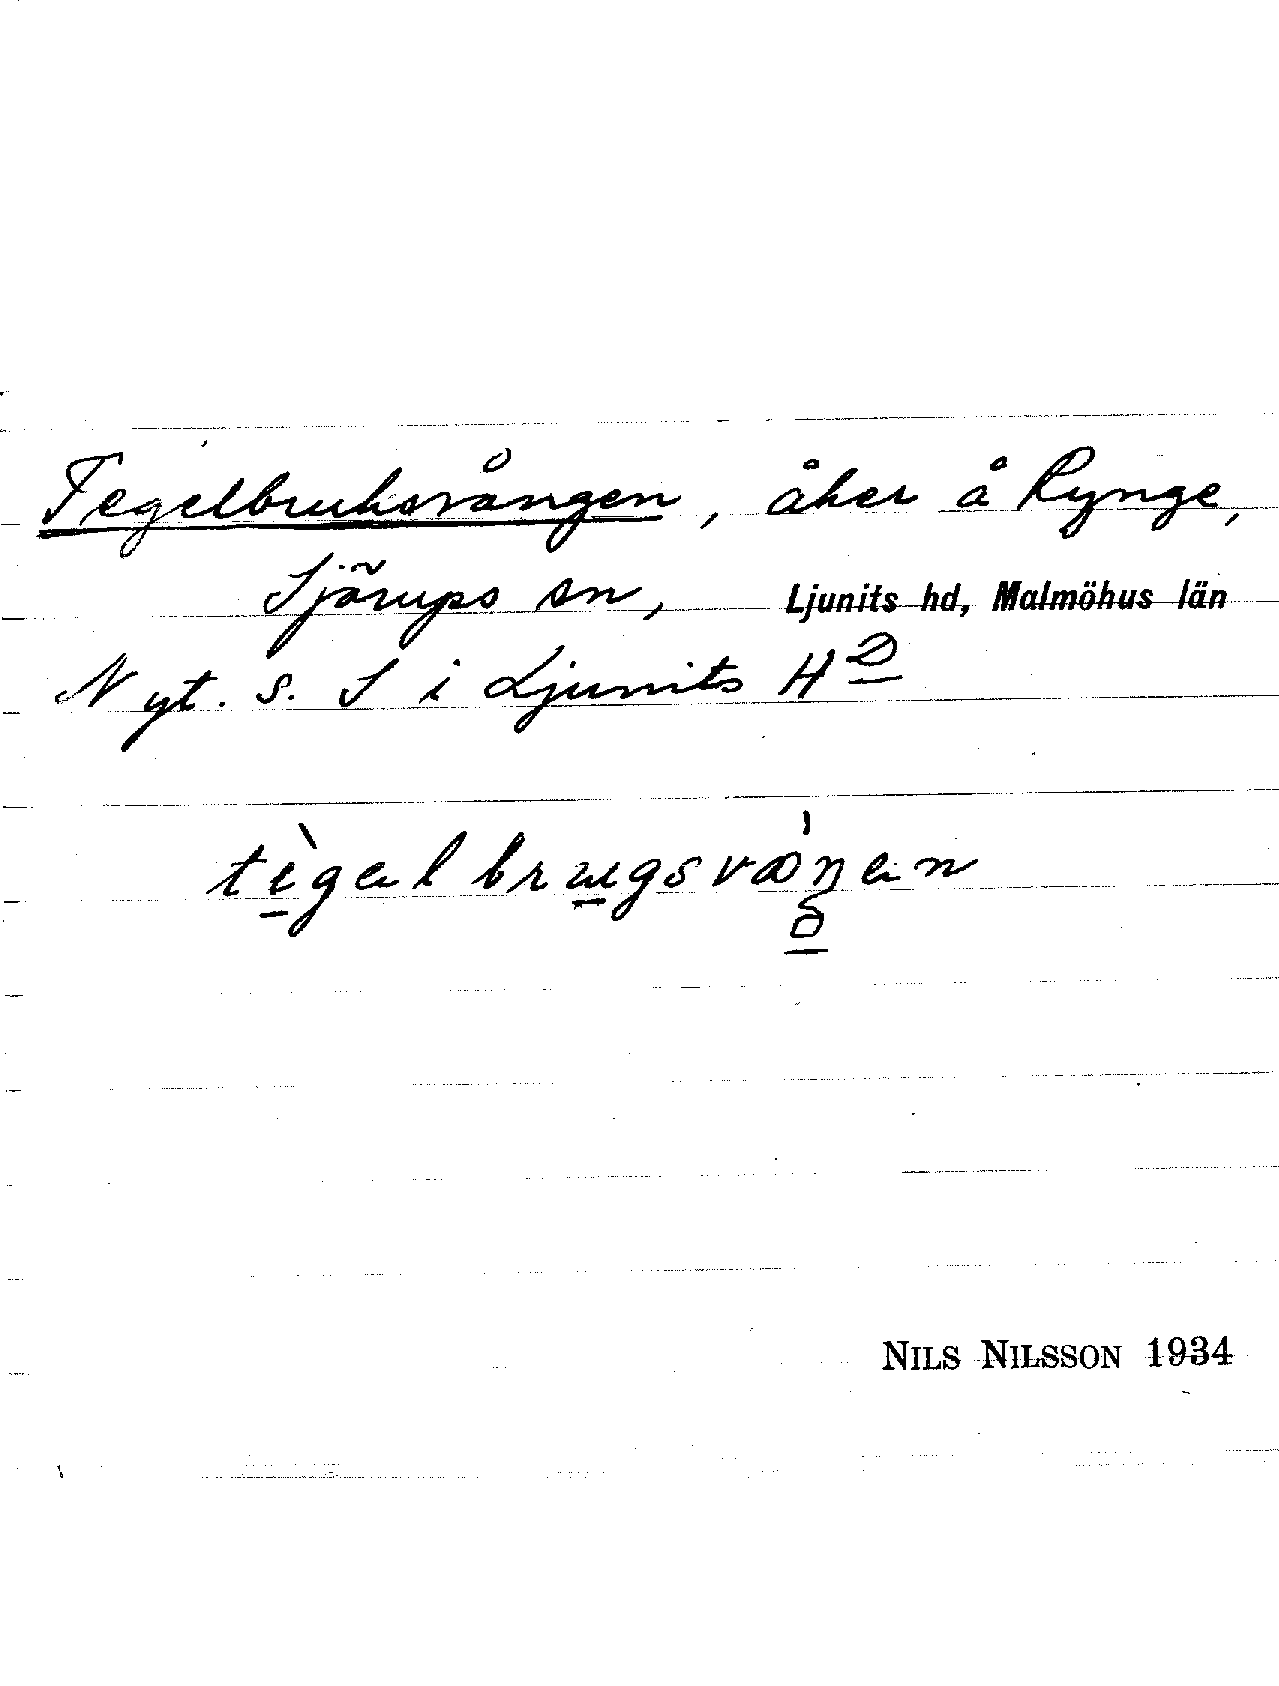 Tegelbruksvången, åker å Rynge,
Sjörups sn, Ljunits hd, Malmöhus län
Nyt. s. S i Ljunits HD
NILS NILSSON 1934